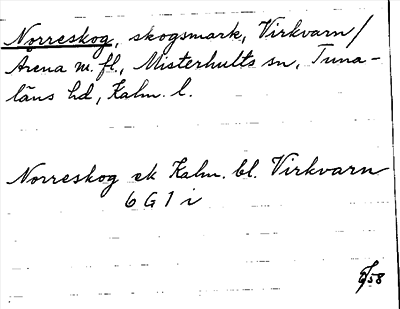 Norreskog, skogsmark, Virkvarn/
Arena m. fl., Misterhults sn, Tuna-
läns hd, Kalm. l.
Norreskog ek Kalm. bl. Virkvarn
6 G 1 i
58